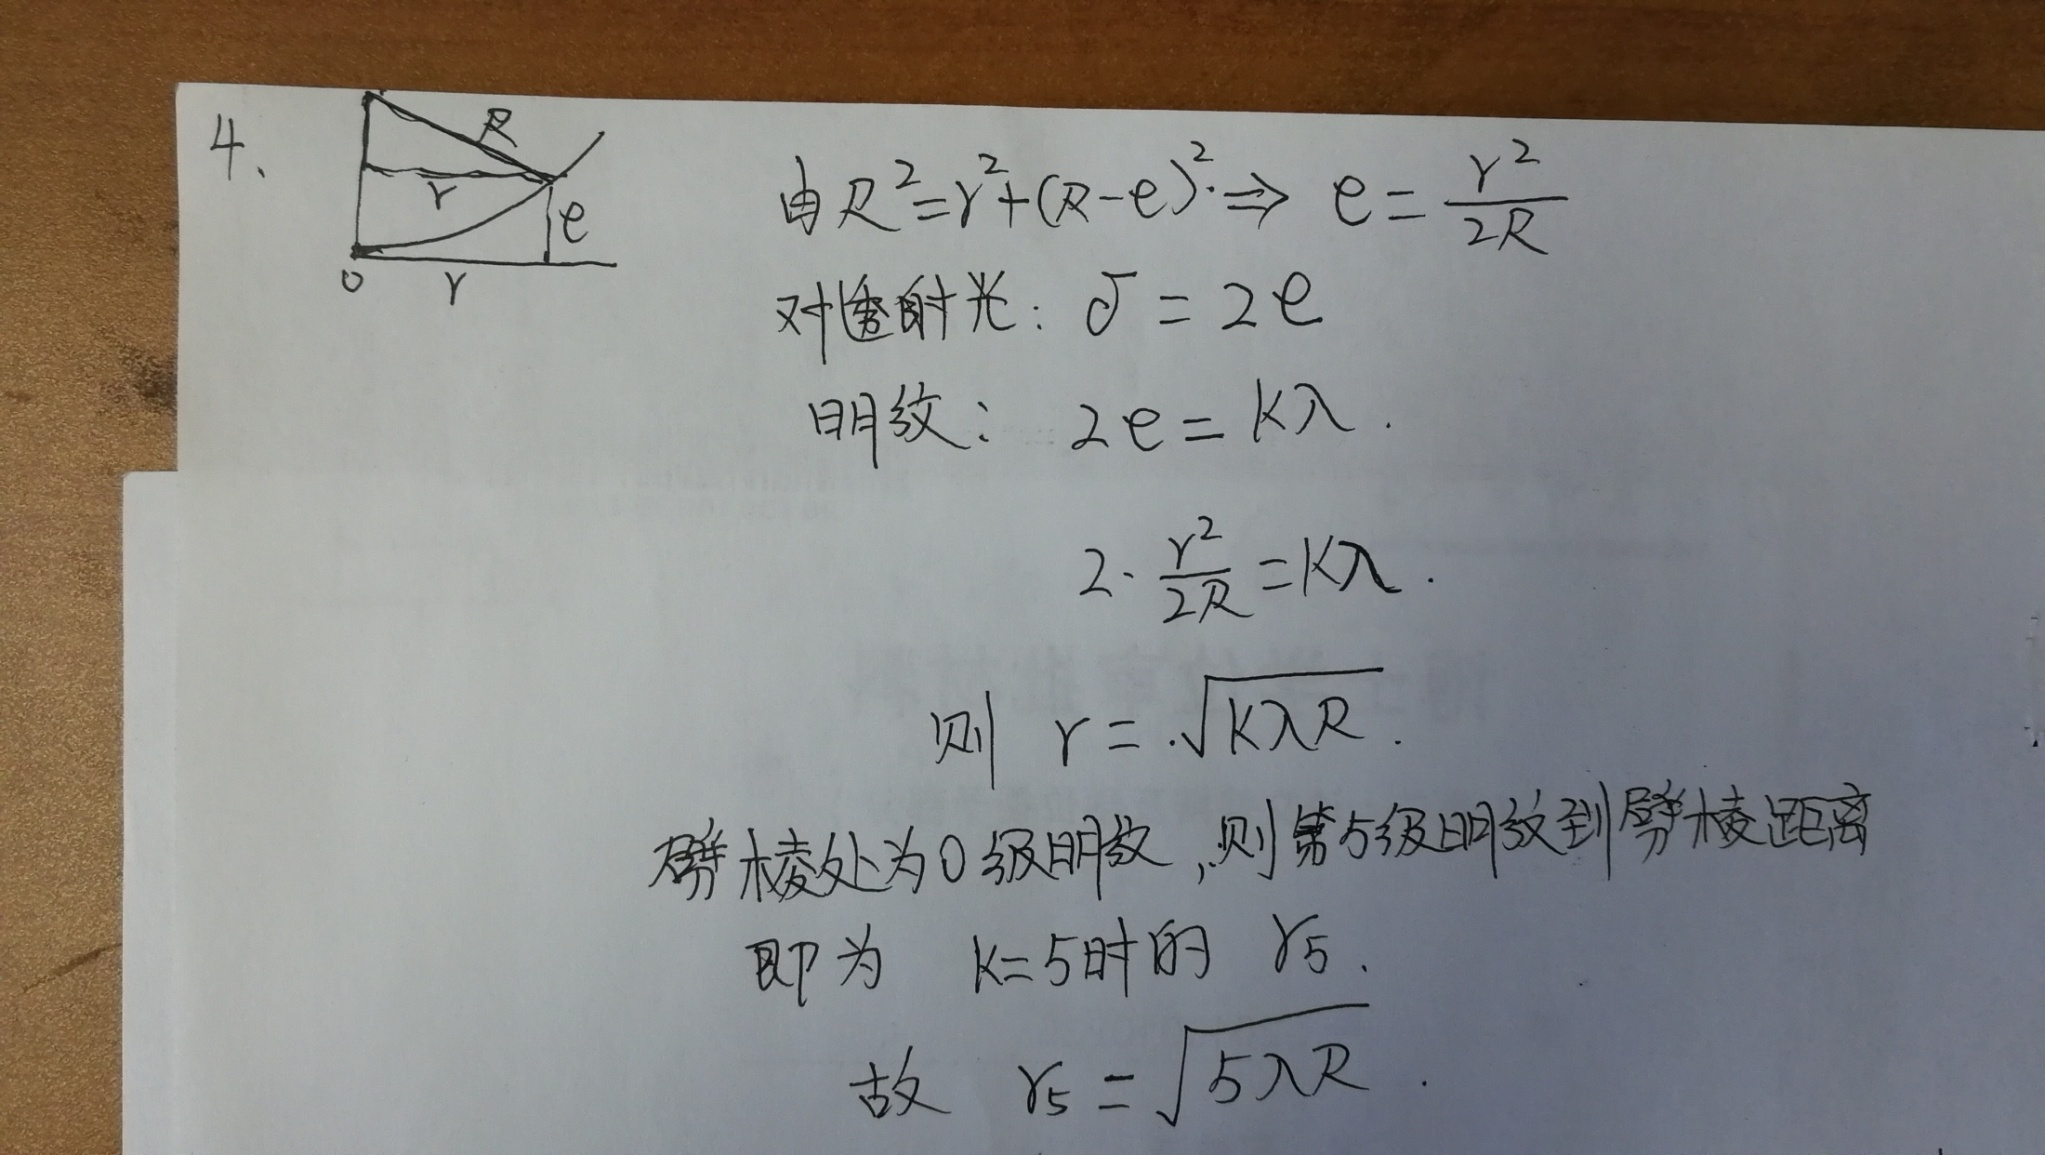 4、
R
r
e
O
r
由R²=r²+(R-e)²⇒ e=r²/2R
对透射光: δ=2e
明纹: 2e=kλ.
2·r²/2R=kλ.
则 r=√kλR.
劈棱处为0级明纹,则第5级明纹到劈棱距离
即为 k=5时的 r₅.
故 r₅=√5λR.